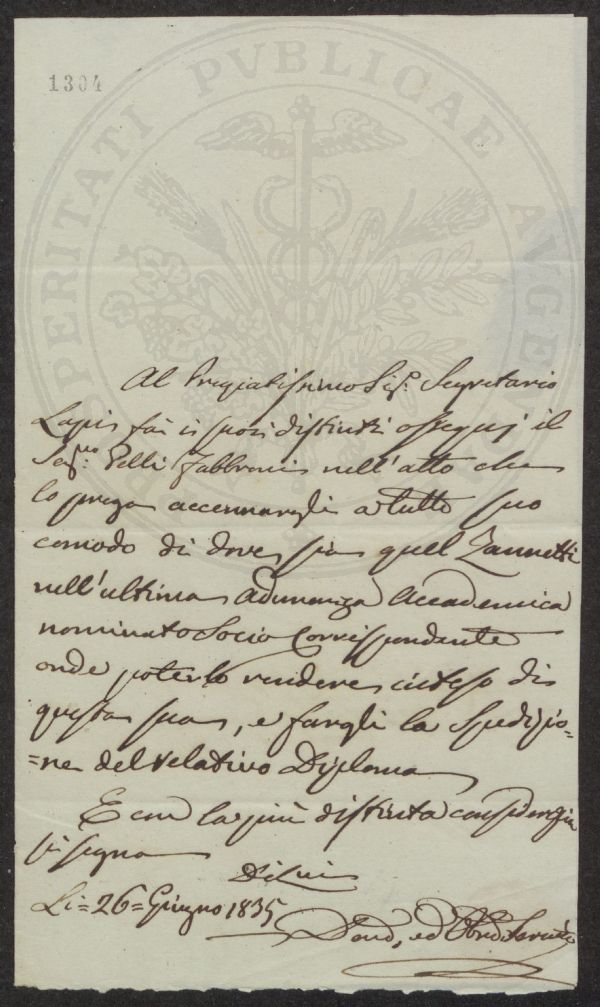 1304
PROSPERITATI PVBLICAE AVGE
Al Pregiatissimo Sigr. Segretario
Lapi fa i suoi distinti ossequj il
Pelli Fabbroni nell'atto che
lo prega accennargli a tutto suo
comodo di dove sia quel Zannetti
nell'ultima Adunanza Accademica
nominato Socio Corrispondente
onde poterlo rendere inteso di
questa sua, e fargli la Spedizio=
=ne del relativo Diploma
E con la più distinta considerazione
si segna
Di Lui
Li= 26= Giugno 1835
Devo, ed Obbo Servite